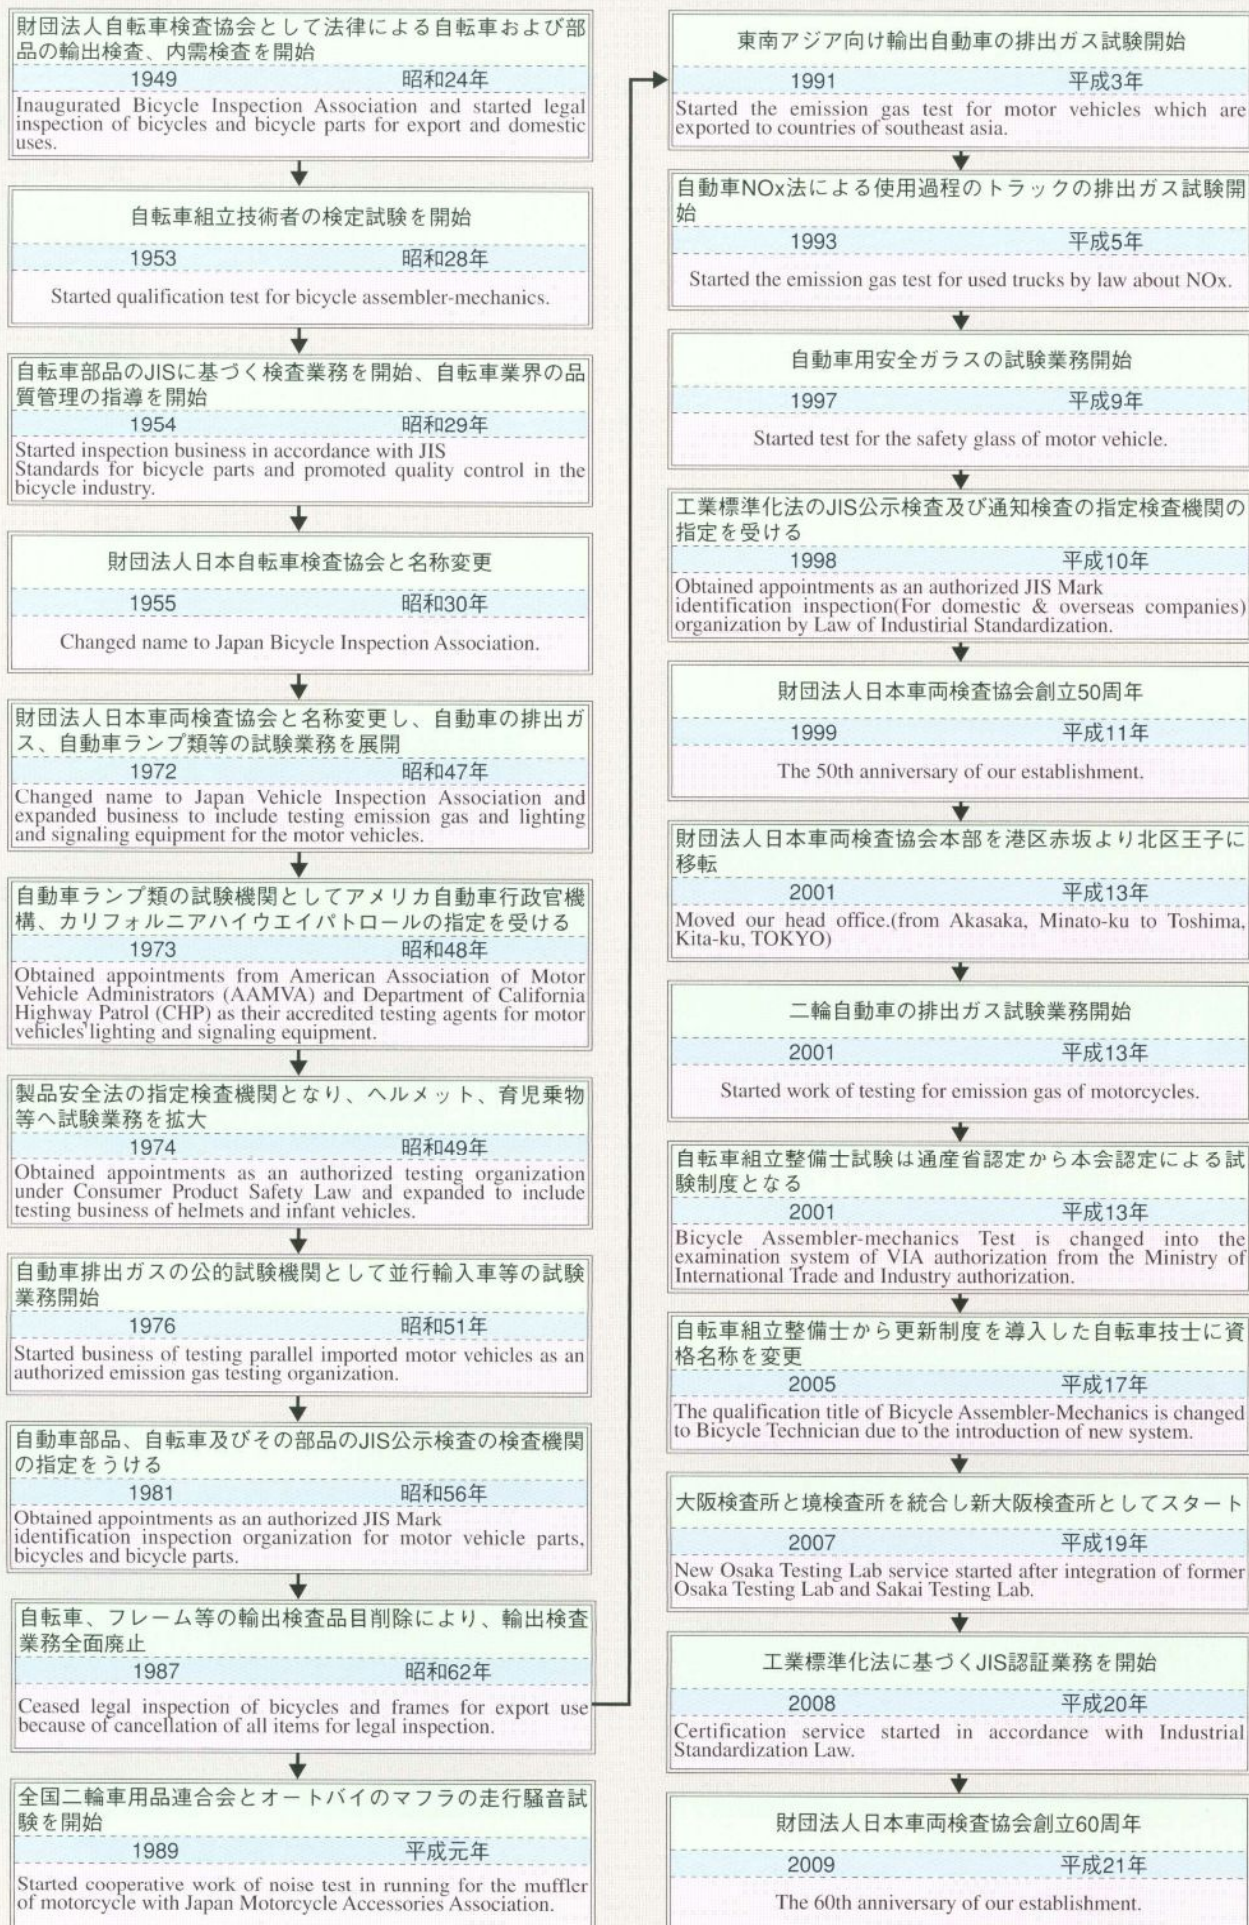 財団法人自転車検査協会として法律による自転車および部
品の輸出検査、内需検査を開始
1949 昭和24年
Inaugurated Bicycle Inspection Association and started legal
inspection of bicycles and bicycle parts for export and domestic
uses.
自転車組立技術者の検定試験を開始
1953 昭和28年
Started qualification test for bicycle assembler-mechanics.
自転車部品のJISに基づく検査業務を開始、自転車業界の品
質管理の指導を開始
1954 昭和29年
Started inspection business in accordance with JIS
Standards for bicycle parts and promoted quality control in the
bicycle industry.
財団法人日本自転車検査協会と名称変更
1955 昭和30年
Changed name to Japan Bicycle Inspection Association.
財団法人日本車両検査協会と名称変更し、自動車の排出ガ
ス、自動車ランプ類等の試験業務を展開
1972 昭和47年
Changed name to Japan Vehicle Inspection Association and
expanded business to include testing emission gas and lighting
and signaling equipment for the motor vehicles.
自動車ランプ類の試験機関としてアメリカ自動車行政官機
構、カリフォルニアハイウエイパトロールの指定を受ける
1973 昭和48年
Obtained appointments from American Association of Motor
Vehicle Administrators (AAMVA) and Department of California
Highway Patrol (CHP) as their accredited testing agents for motor
vehicles' lighting and signaling equipment.
製品安全法の指定検査機関となり、ヘルメット、育児乗物
等へ試験業務を拡大
1974 昭和49年
Obtained appointments as an authorized testing organization
under Consumer Product Safety Law and expanded to include
testing business of helmets and infant vehicles.
自動車排出ガスの公的試験機関として並行輸入車等の試験
業務開始
1976 昭和51年
Started business of testing parallel imported motor vehicles as an
authorized emission gas testing organization.
自動車部品、自転車及びその部品のJIS公示検査の検査機関
の指定をうける
1981 昭和56年
Obtained appointments as an authorized JIS Mark
identification inspection organization for motor vehicle parts,
bicycles and bicycle parts.
自転車、フレーム等の輸出検査品目削除により、輸出検査
業務全面廃止
1987 昭和62年
Ceased legal inspection of bicycles and frames for export use
because of cancellation of all items for legal inspection.
全国二輪車用品連合会とオートバイのマフラの走行騒音試
験を開始
1989 平成元年
Started cooperative work of noise test in running for the muffler
of motorcycle with Japan Motorcycle Accessories Association.
東南アジア向け輸出自動車の排出ガス試験開始
1991 平成3年
Started the emission gas test for motor vehicles which are
exported to countries of southeast asia.
自動車NOx法による使用過程のトラックの排出ガス試験開
始
1993 平成5年
Started the emission gas test for used trucks by law about NOx.
自動車用安全ガラスの試験業務開始
1997 平成9年
Started test for the safety glass of motor vehicle.
工業標準化法のJIS公示検査及び通知検査の指定検査機関の
指定を受ける
1998 平成10年
Obtained appointments as an authorized JIS Mark
identification inspection(For domestic & overseas companies)
organization by Law of Industirial Standardization.
財団法人日本車両検査協会創立50周年
1999 平成11年
The 50th anniversary of our establishment.
財団法人日本車両検査協会本部を港区赤坂より北区王子に
移転
2001 平成13年
Moved our head office.(from Akasaka, Minato-ku to Toshima,
Kita-ku, TOKYO)
二輪自動車の排出ガス試験業務開始
2001 平成13年
Started work of testing for emission gas of motorcycles.
自転車組立整備士試験は通産省認定から本会認定による試
験制度となる
2001 平成13年
Bicycle Assembler-mechanics Test is changed into the
examination system of VIA authorization from the Ministry of
International Trade and Industry authorization.
自転車組立整備士から更新制度を導入した自転車技士に資
格名称を変更
2005 平成17年
The qualification title of Bicycle Assembler-Mechanics is changed
to Bicycle Technician due to the introduction of new system.
大阪検査所と境検査所を統合し新大阪検査所としてスタート
2007 平成19年
New Osaka Testing Lab service started after integration of former
Osaka Testing Lab and Sakai Testing Lab.
工業標準化法に基づくJIS認証業務を開始
2008 平成20年
Certification service started in accordance with Industrial
Standardization Law.
財団法人日本車両検査協会創立60周年
2009 平成21年
The 60th anniversary of our establishment.